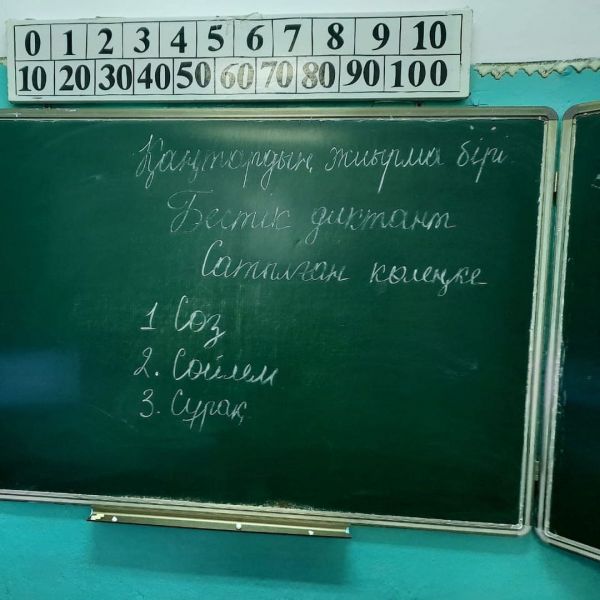 0 1 2 3 4 5 6 7 8 9 10
10 20 30 40 50 60 70 80 90 100
Қаңтардың жиырма бірі
Бестік диктант
Сатылған көлеңке
1 Сөз
2. Сөйлем
3. Сұрақ